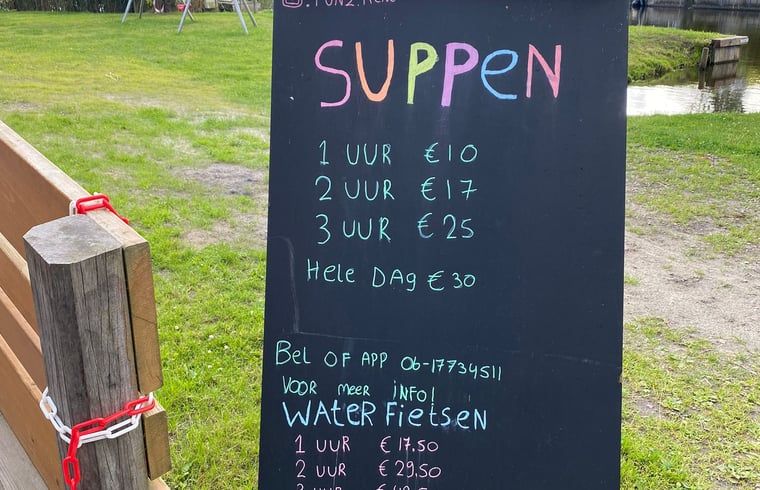 SUPPEN
1 UUR €10
2 UUR €17
3 UUR €25
Hele DAg €30
Bel OF APP 06-17734511
VOOR meer INFO!
WAteR Fietsen
1 UUR €17.50
2 UUR €29.50